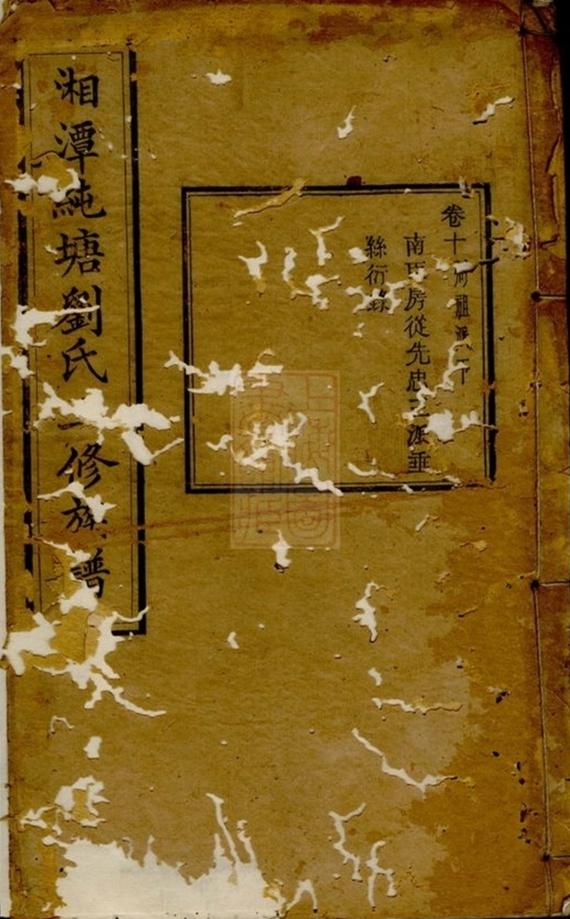 湘潭純塘劉氏修族譜
卷十祖派下
南房從先忠派垂
絲衍錄